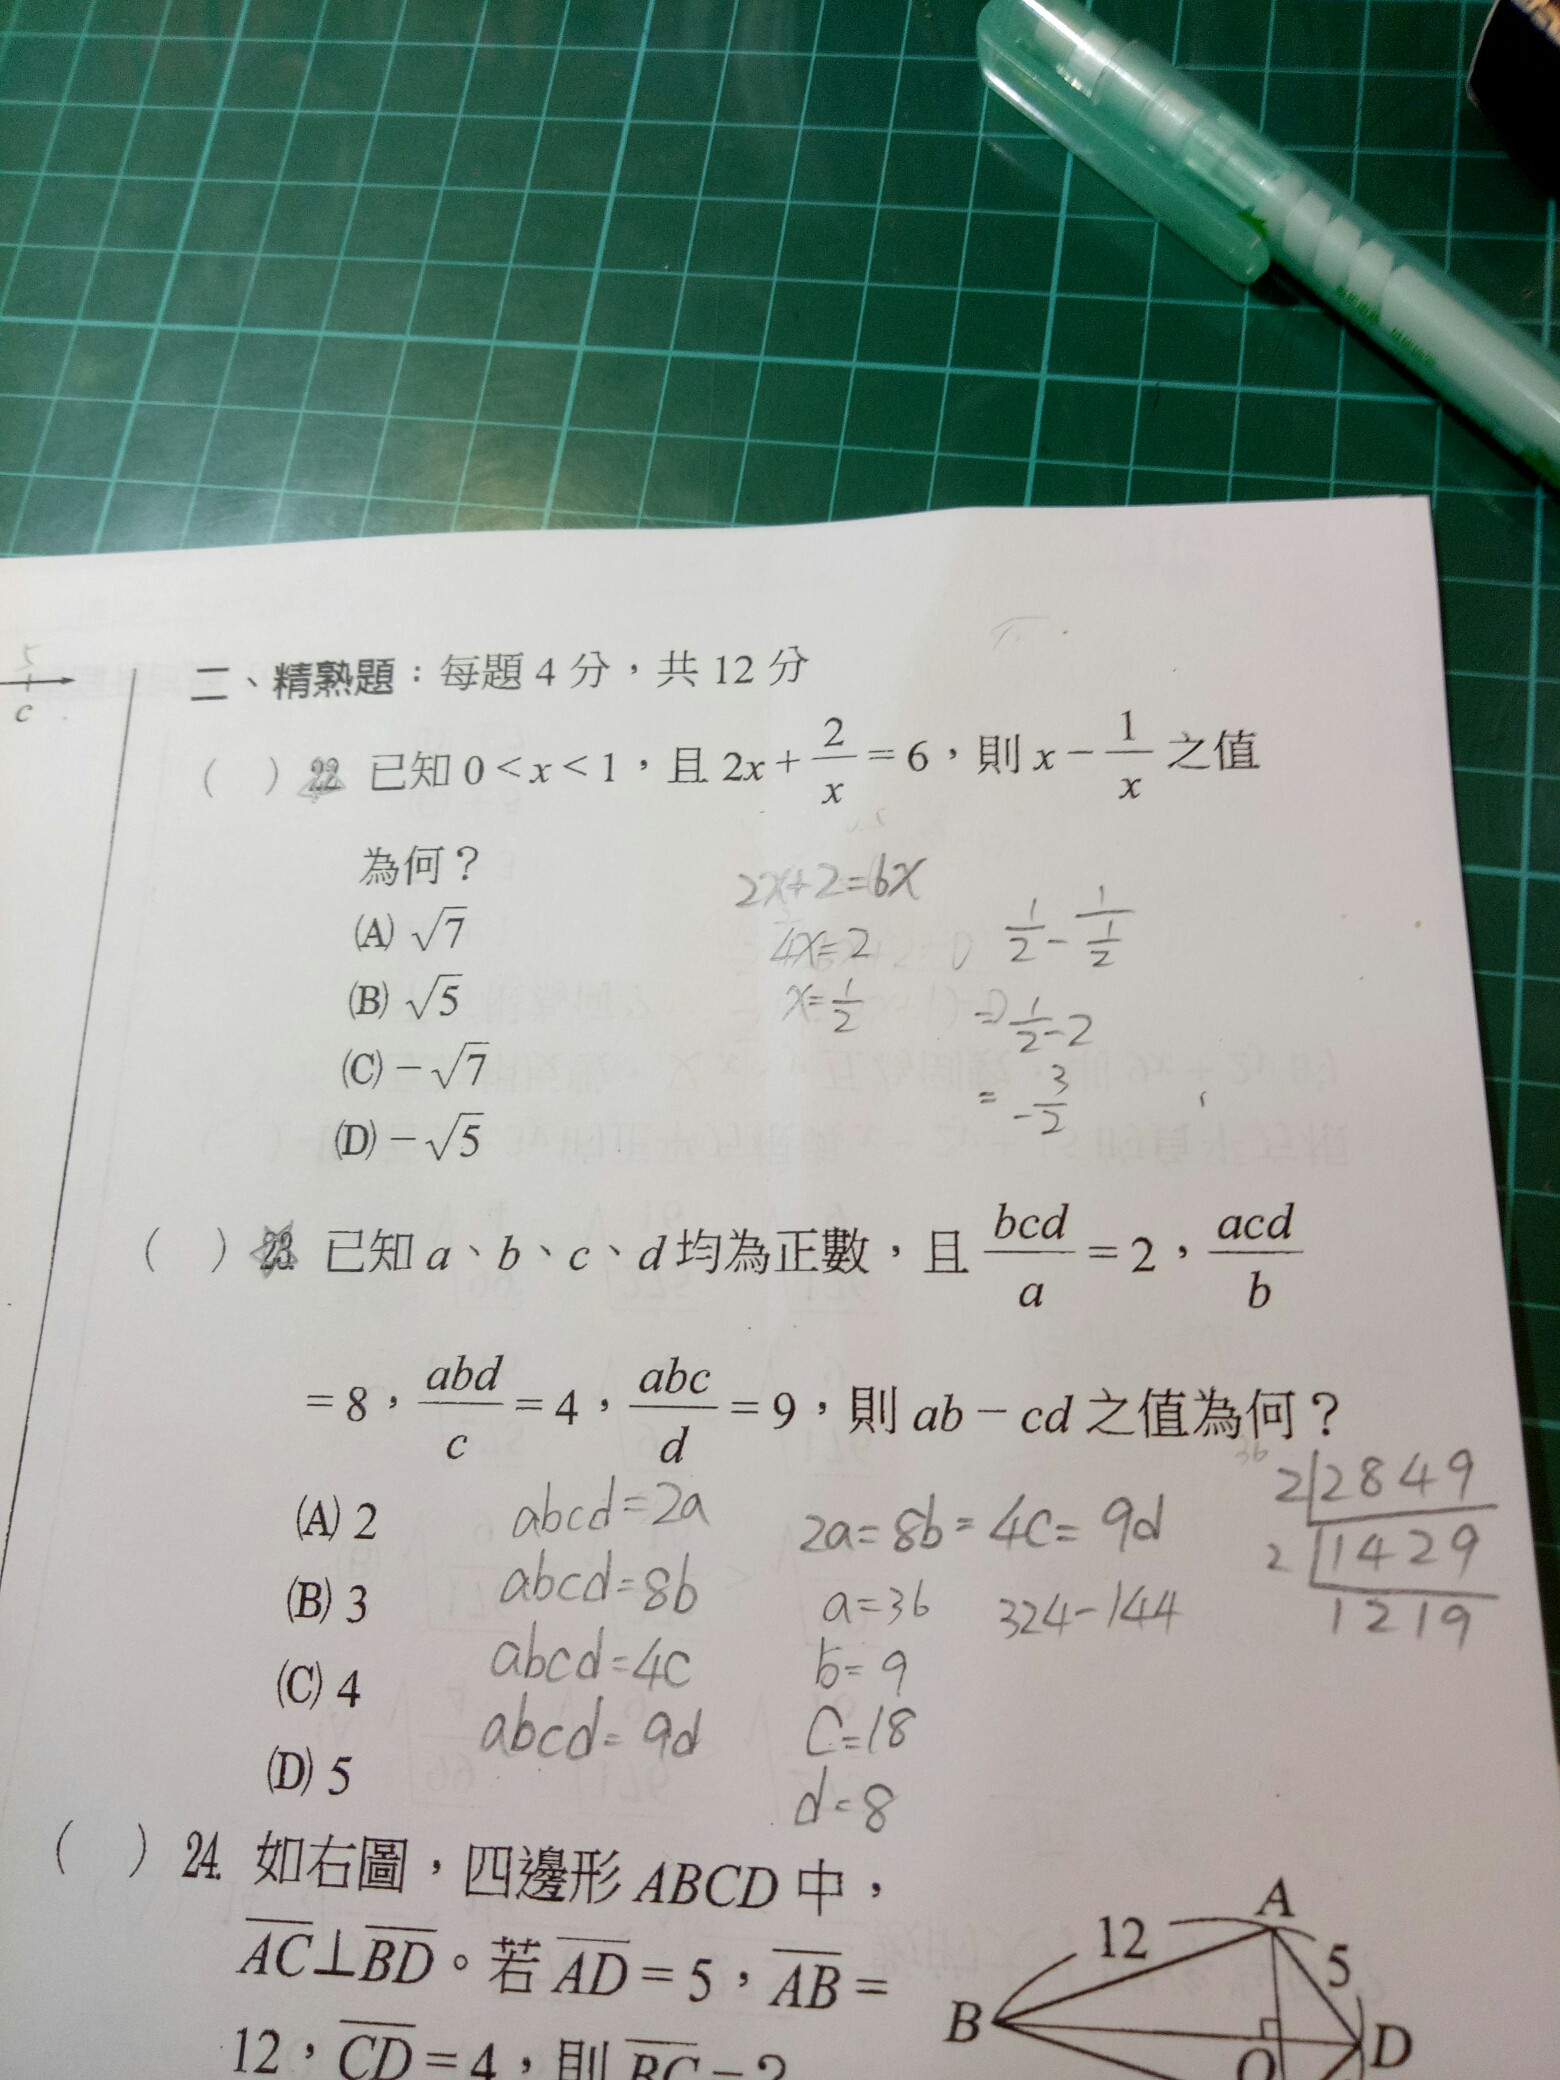 5
c
二、精熟題：每題 4 分，共 12 分
( ) 22. 已知 0 < x < 1，且 2x + 2/x = 6，則 x − 1/x 之值
為何？
(A) √7
(B) √5
(C) −√7
(D) −√5
2x+2=6x
4x=2
x=1/2
1/2 - 1/(1/2)
= 1/2 - 2
= -3/2
( ) 23. 已知 a、b、c、d 均為正數，且 bcd/a = 2，acd/b
= 8，abd/c = 4，abc/d = 9，則 ab − cd 之值為何？
(A) 2
(B) 3
(C) 4
(D) 5
abcd=2a
abcd=8b
abcd=4c
abcd=9d
2a=8b=4c=9d
a=36
b=9
c=18
d=8
324-144
36
2|2 8 4 9
2|1 4 2 9
1 2 1 9
( ) 24. 如右圖，四邊形 ABCD 中，
AC⊥BD。若 AD = 5，AB =
12，CD = 4，則 BC = ?
A
12
5
B
D
O